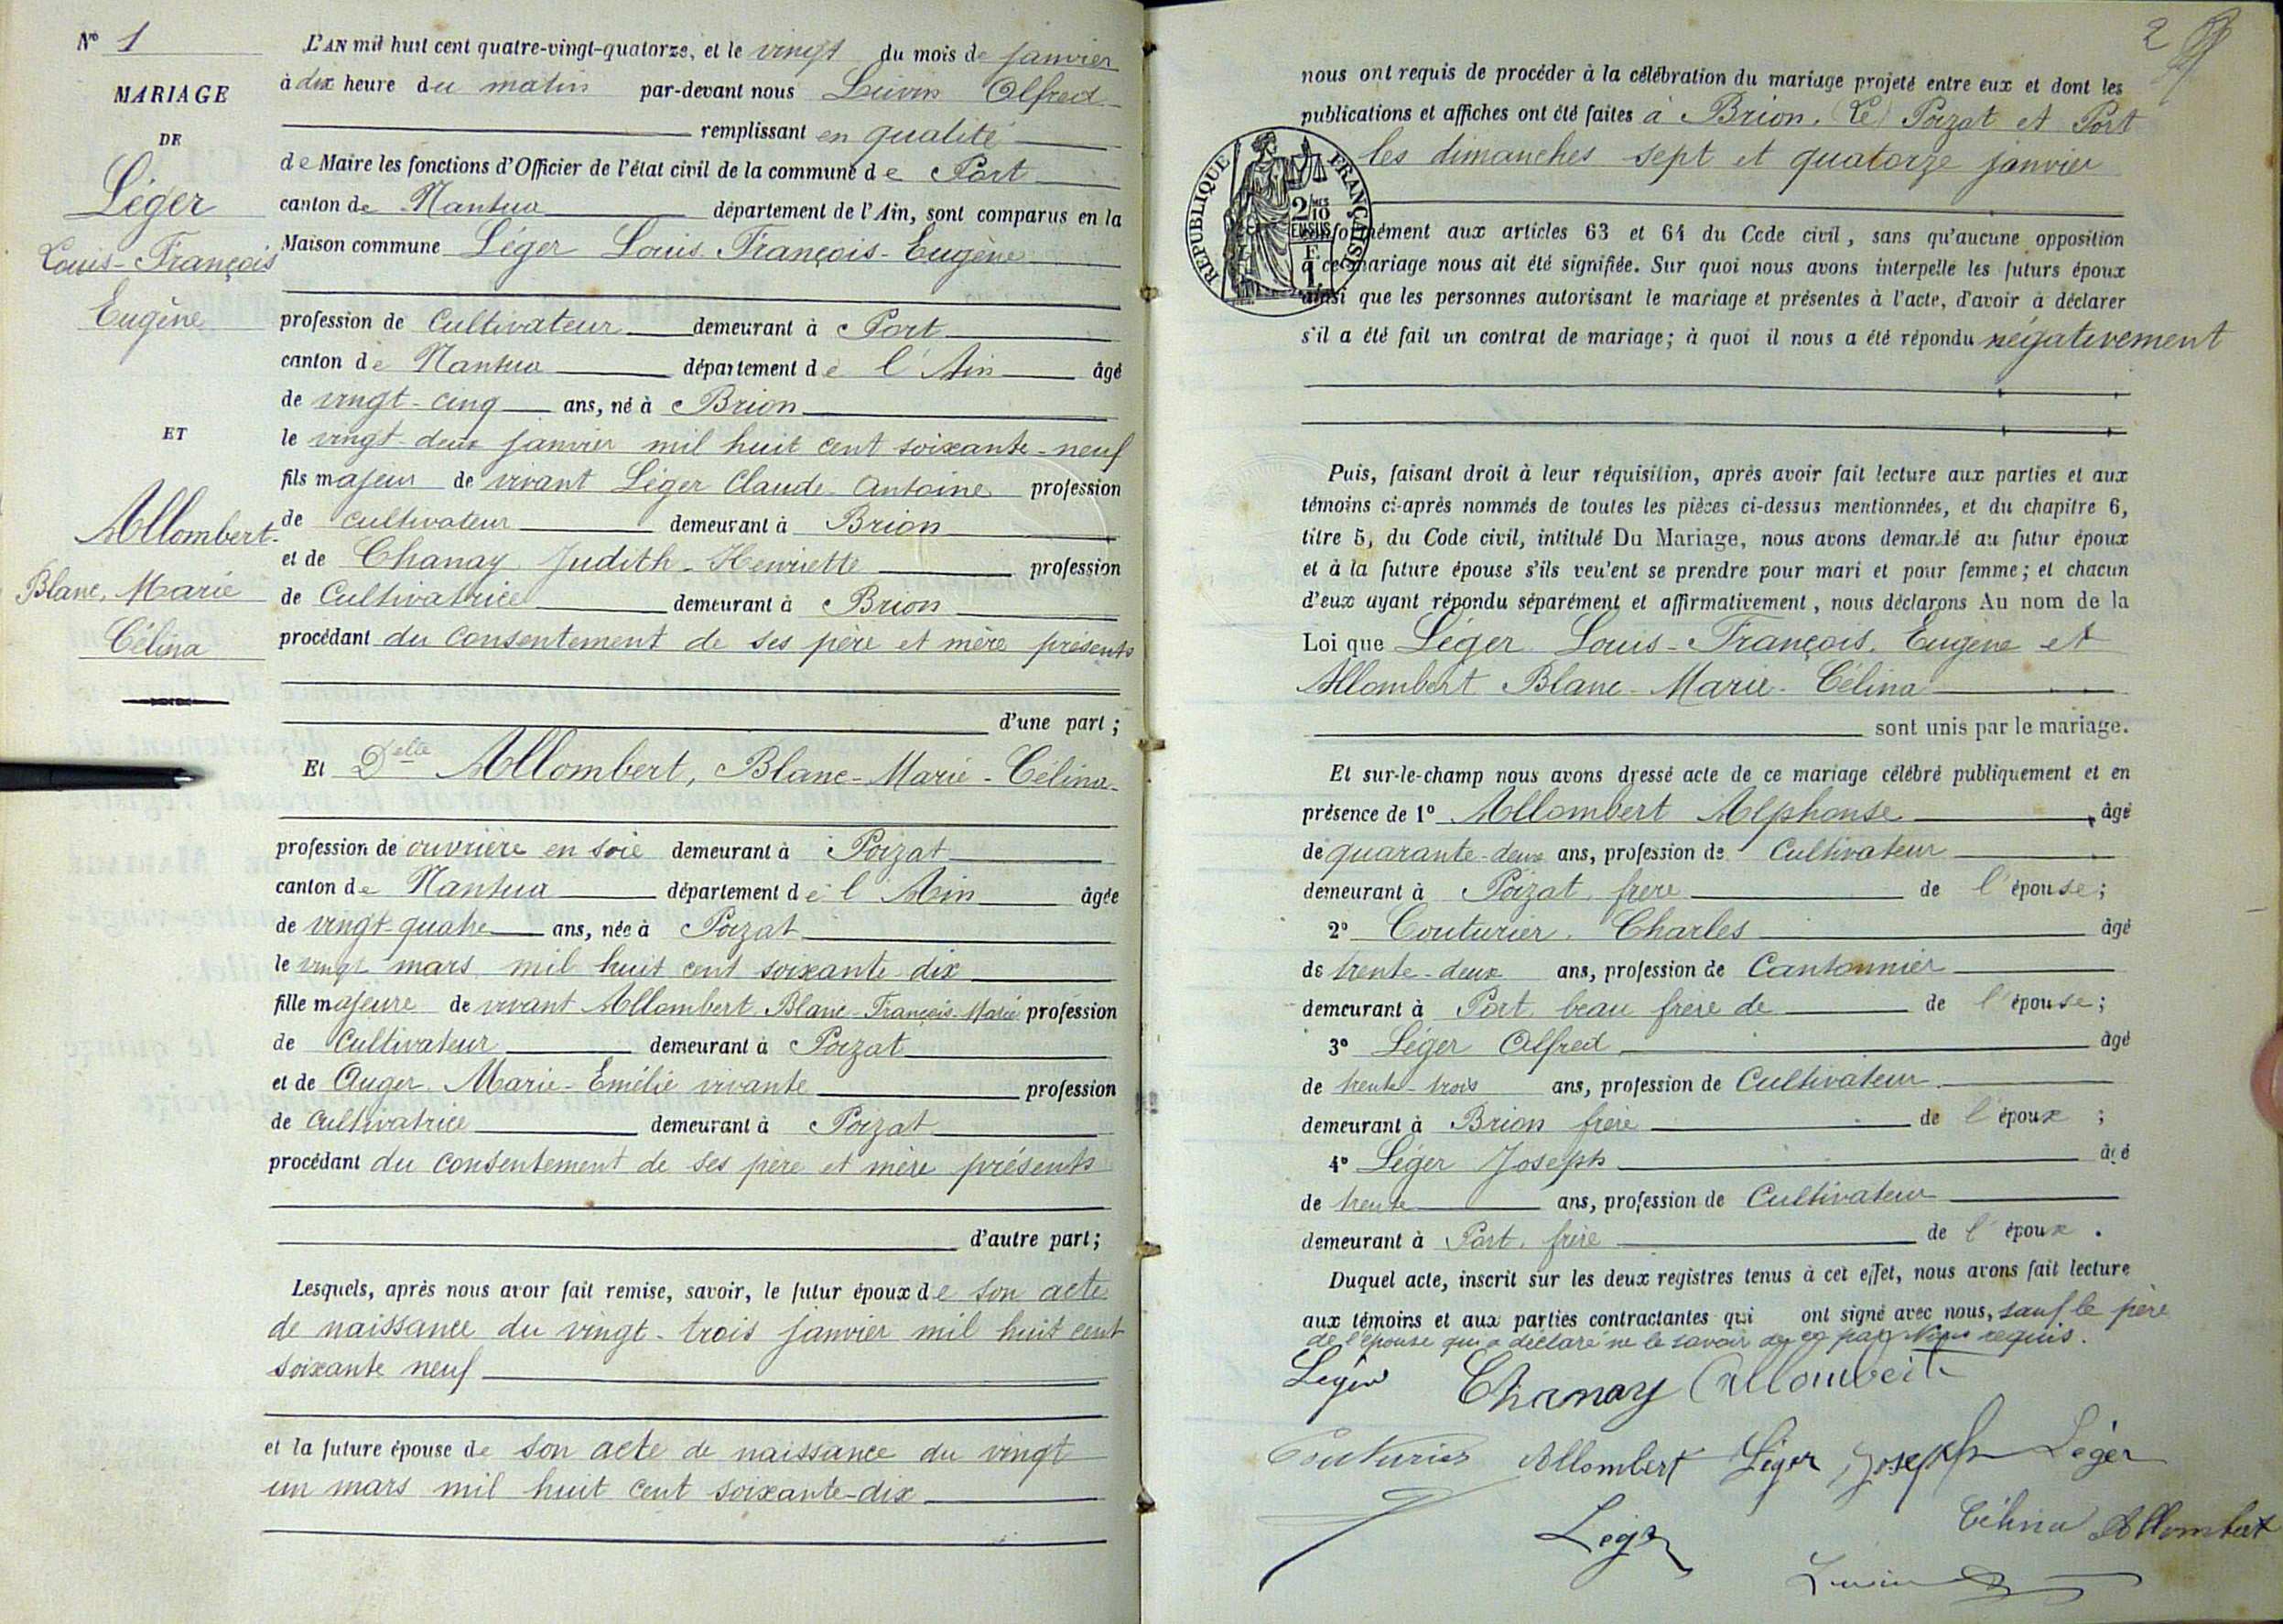 N° 1
MARIAGE
DE
Léger
Louis-François
Eugène
ET
Allombert-
Blanc, Marie
Célina
L'AN mil huit cent quatre-vingt-quatorze, et le vingt du mois de janvier
à dix heure du matin par-devant nous Alfred
remplissant en qualité
de Maire les fonctions d'Officier de l'état civil de la commune de Port
canton de Nantua département de l'Ain, sont comparus en la
Maison commune Léger Louis-François-Eugène
profession de Cultivateur demeurant à Port
canton de Nantua département de l'Ain âgé
de vingt-cinq ans, né à Brion
le vingt-deux janvier mil huit cent soixante-neuf
fils majeur de vivant Léger Claude Antoine profession
de cultivateur demeurant à Brion
et de Chanay Judith-Henriette profession
de Cultivatrice demeurant à Brion
procédant du consentement de ses père et mère présents
d'une part;
Et Delle Allombert, Blanc-Marie-Célina
profession de ouvrière en soie demeurant à Poizat
canton de Nantua département de l'Ain âgée
de vingt-quatre ans, née à Poizat
le vingt mars mil huit cent soixante-dix
fille majeure de vivant Allombert Blanc-François-Marie profession
de Cultivateur demeurant à Poizat
et de Auger Marie-Emélie vivante profession
de cultivatrice demeurant à Poizat
procédant du consentement de ses père et mère présents
d'autre part;
Lesquels, après nous avoir fait remise, savoir, le futur époux de son acte
de naissance du vingt-trois janvier mil huit cent
soixante neuf
et la future épouse de son acte de naissance du vingt
un mars mil huit cent soixante-dix
2
nous ont requis de procéder à la célébration du mariage projeté entre eux et dont les
publications et affiches ont été faites à Brion, (Le) Poizat et Port
les dimanches sept et quatorze janvier
REPUBLIQUE FRANÇAISE
2/10 MES
EN SUS
F.
1
conformément aux articles 63 et 64 du Code civil, sans qu'aucune opposition
à ce mariage nous ait été signifiée. Sur quoi nous avons interpelle les futurs époux
ainsi que les personnes autorisant le mariage et présentes à l'acte, d'avoir à déclarer
s'il a été fait un contrat de mariage; à quoi il nous a été répondu négativement
Puis, faisant droit à leur réquisition, après avoir fait lecture aux parties et aux
témoins ci-après nommés de toutes les pièces ci-dessus mentionnées, et du chapitre 6,
titre 5, du Code civil, intitulé Du Mariage, nous avons demandé au futur époux
et à la future épouse s'ils veulent se prendre pour mari et pour femme; et chacun
d'eux ayant répondu séparément et affirmativement, nous déclarons Au nom de la
Loi que Léger Louis-François-Eugène et
Allombert Blanc-Marie-Célina
sont unis par le mariage.
Et sur-le-champ nous avons dressé acte de ce mariage célébré publiquement et en
présence de 1° Allombert Alphonse âgé
de quarante-deux ans, profession de Cultivateur
demeurant à Poizat, frère de l'épouse;
2° Couturier, Charles âgé
de trente-deux ans, profession de Cantonnier
demeurant à Port beau frère de de l'épouse;
3° Léger Alfred âgé
de trente-trois ans, profession de Cultivateur
demeurant à Brion frère de l'époux;
4° Léger Joseph âgé
de trente ans, profession de Cultivateur
demeurant à Port, frère de l'époux.
Duquel acte, inscrit sur les deux registres tenus à cet effet, nous avons fait lecture
aux témoins et aux parties contractantes qui ont signé avec nous, sauf le père
de l'épouse qui a déclaré ne le savoir de ce par Nous requis.
Léger Chanay Allombert
Couturier Allombert Léger Joseph Léger
Léger Célina Allombert